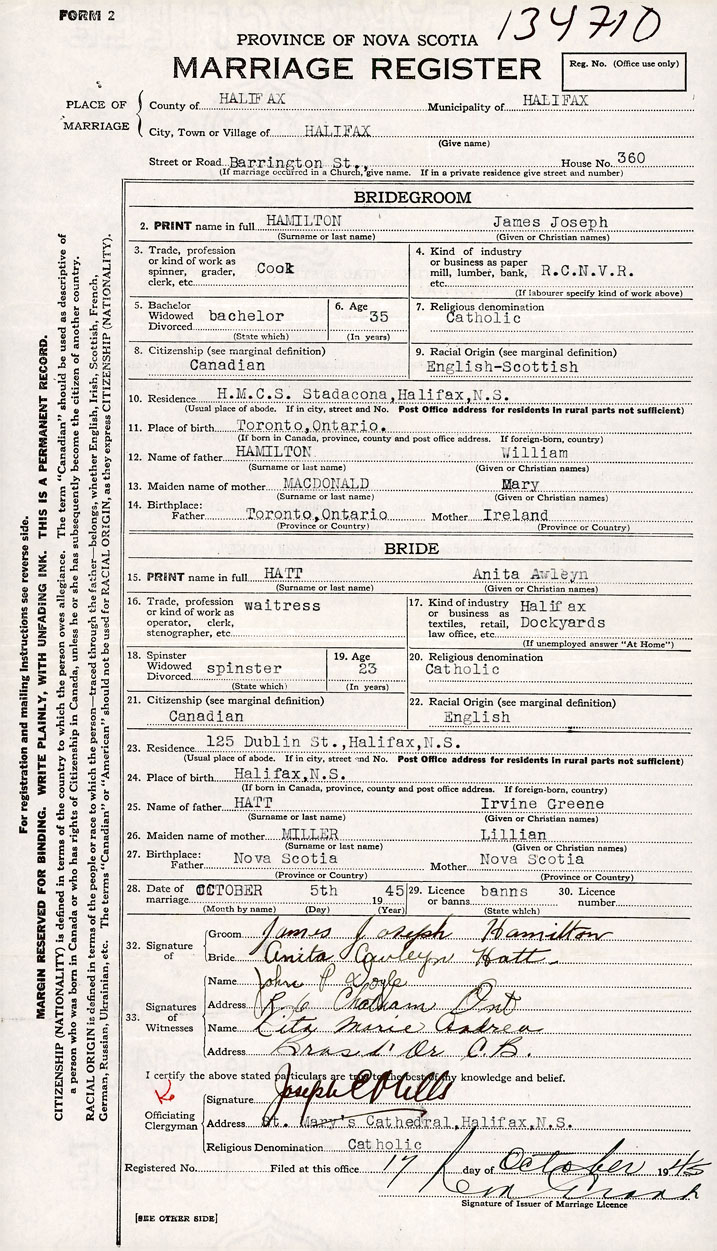 FORM 2
134710
PROVINCE OF NOVA SCOTIA
MARRIAGE REGISTER
Reg. No. (Office use only)
PLACE OF MARRIAGE
County of HALIFAX Municipality of HALIFAX
City, Town or Village of HALIFAX
(Give name)
Street or Road Barrington St., House No. 360
(If marriage occurred in a Church, give name. If in a private residence give street and number)
BRIDEGROOM
2. PRINT name in full HAMILTON James Joseph
(Surname or last name) (Given or Christian names)
3. Trade, profession or kind of work as spinner, grader, clerk, etc. Cook
4. Kind of industry or business as paper mill, lumber, bank, etc. R.C.N.V.R.
(If labourer specify kind of work above)
5. Bachelor Widowed Divorced bachelor
(State which)
6. Age 35
(In years)
7. Religious denomination
Catholic
8. Citizenship (see marginal definition)
Canadian
9. Racial Origin (see marginal definition)
English-Scottish
10. Residence H.M.C.S. Stadacona,Halifax,N.S.
(Usual place of abode. If in city, street and No. Post Office address for residents in rural parts not sufficient)
11. Place of birth Toronto,Ontario.
(If born in Canada, province, county and post office address. If foreign-born, country)
12. Name of father HAMILTON William
(Surname or last name) (Given or Christian names)
13. Maiden name of mother MACDONALD Mary
(Surname or last name) (Given or Christian names)
14. Birthplace: Father Toronto,Ontario Mother Ireland
(Province or Country) (Province or Country)
BRIDE
15. PRINT name in full HATT Anita Awleyn
(Surname or last name) (Given or Christian names)
16. Trade, profession or kind of work as operator, clerk, stenographer, etc. waitress
17. Kind of industry or business as textiles, retail, law office, etc. Halifax Dockyards
(If unemployed answer "At Home")
18. Spinster Widowed Divorced spinster
(State which)
19. Age 23
(In years)
20. Religious denomination
Catholic
21. Citizenship (see marginal definition)
Canadian
22. Racial Origin (see marginal definition)
English
23. Residence 125 Dublin St.,Halifax,N.S.
(Usual place of abode. If in city, street and No. Post Office address for residents in rural parts not sufficient)
24. Place of birth Halifax,N.S.
(If born in Canada, province, county and post office address. If foreign-born, country)
25. Name of father HATT Irvine Greene
(Surname or last name) (Given or Christian names)
26. Maiden name of mother MILLER Lillian
(Surname or last name) (Given or Christian names)
27. Birthplace: Father Nova Scotia Mother Nova Scotia
(Province or Country) (Province or Country)
28. Date of marriage OCTOBER 5th 1945
(Month by name) (Day) (Year)
29. Licence or banns banns
(State which)
30. Licence number
32. Signature of
Groom James Joseph Hamilton
Bride Anita Hatt
33. Signatures of Witnesses
Name John P Doyle
Address Chatham Ont
Name Rita Marie Andrea
Address Bras d'Or C.B.
I certify the above stated particulars are true to the best of my knowledge and belief.
Officiating Clergyman
Signature Joseph
Address St. Mary's Cathedral,Halifax,N.S.
Religious Denomination Catholic
Registered No. Filed at this office 17 day of October 1945
Signature of Issuer of Marriage Licence
[SEE OTHER SIDE]
For registration and mailing instructions see reverse side.
MARGIN RESERVED FOR BINDING. WRITE PLAINLY, WITH UNFADING INK. THIS IS A PERMANENT RECORD.
CITIZENSHIP (NATIONALITY) is defined in terms of the country to which the person owes allegiance. The term "Canadian" should be used as descriptive of
a person who was born in Canada or who has rights of Citizenship in Canada, unless he or she has subsequently become the citizen of another country.
RACIAL ORIGIN is defined in terms of the people or race to which the person—traced through the father—belongs, whether English, Irish, Scottish, French,
German, Russian, Ukrainian, etc. The terms "Canadian" or "American" should not be used for RACIAL ORIGIN, as they express CITIZENSHIP (NATIONALITY).